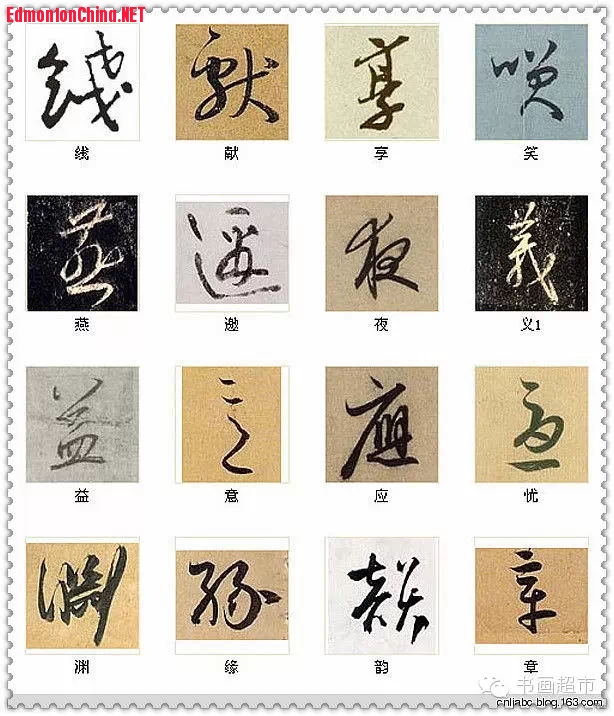 EdmontonChina.NET
线 献 享 笑
燕 邀 夜 义1
益 意 应 忧
渊 缘 韵 章
书画超市
cnljabc.blog.163.com